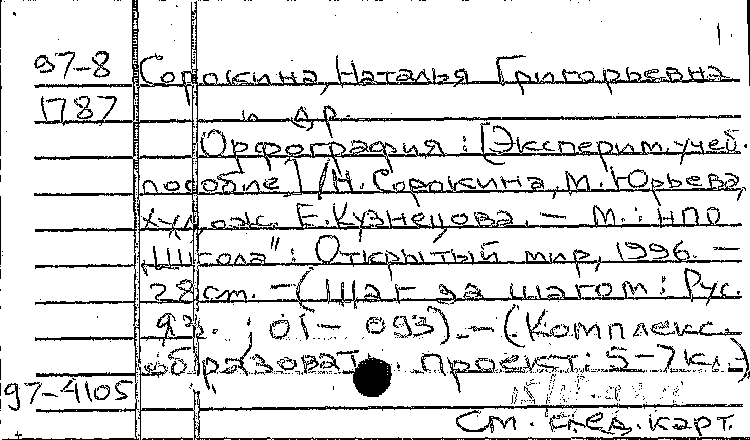 1
97-8 Сорокина, Наталья Григорьевна
1787 и др.
Орфография : [Эксперим. учеб.
пособие] / Н. Сорокина, М. Юрьева,
худож. Е. Кузнецова. – М. : НПО
"Школа" : Открытый мир, 1996. –
28 см. – (Шаг за шагом : Рус.
яз. ; 01 – 093). – (Комплекс.
образоват. проект : 5-7 кл.)
97-4105
См. след. карт.